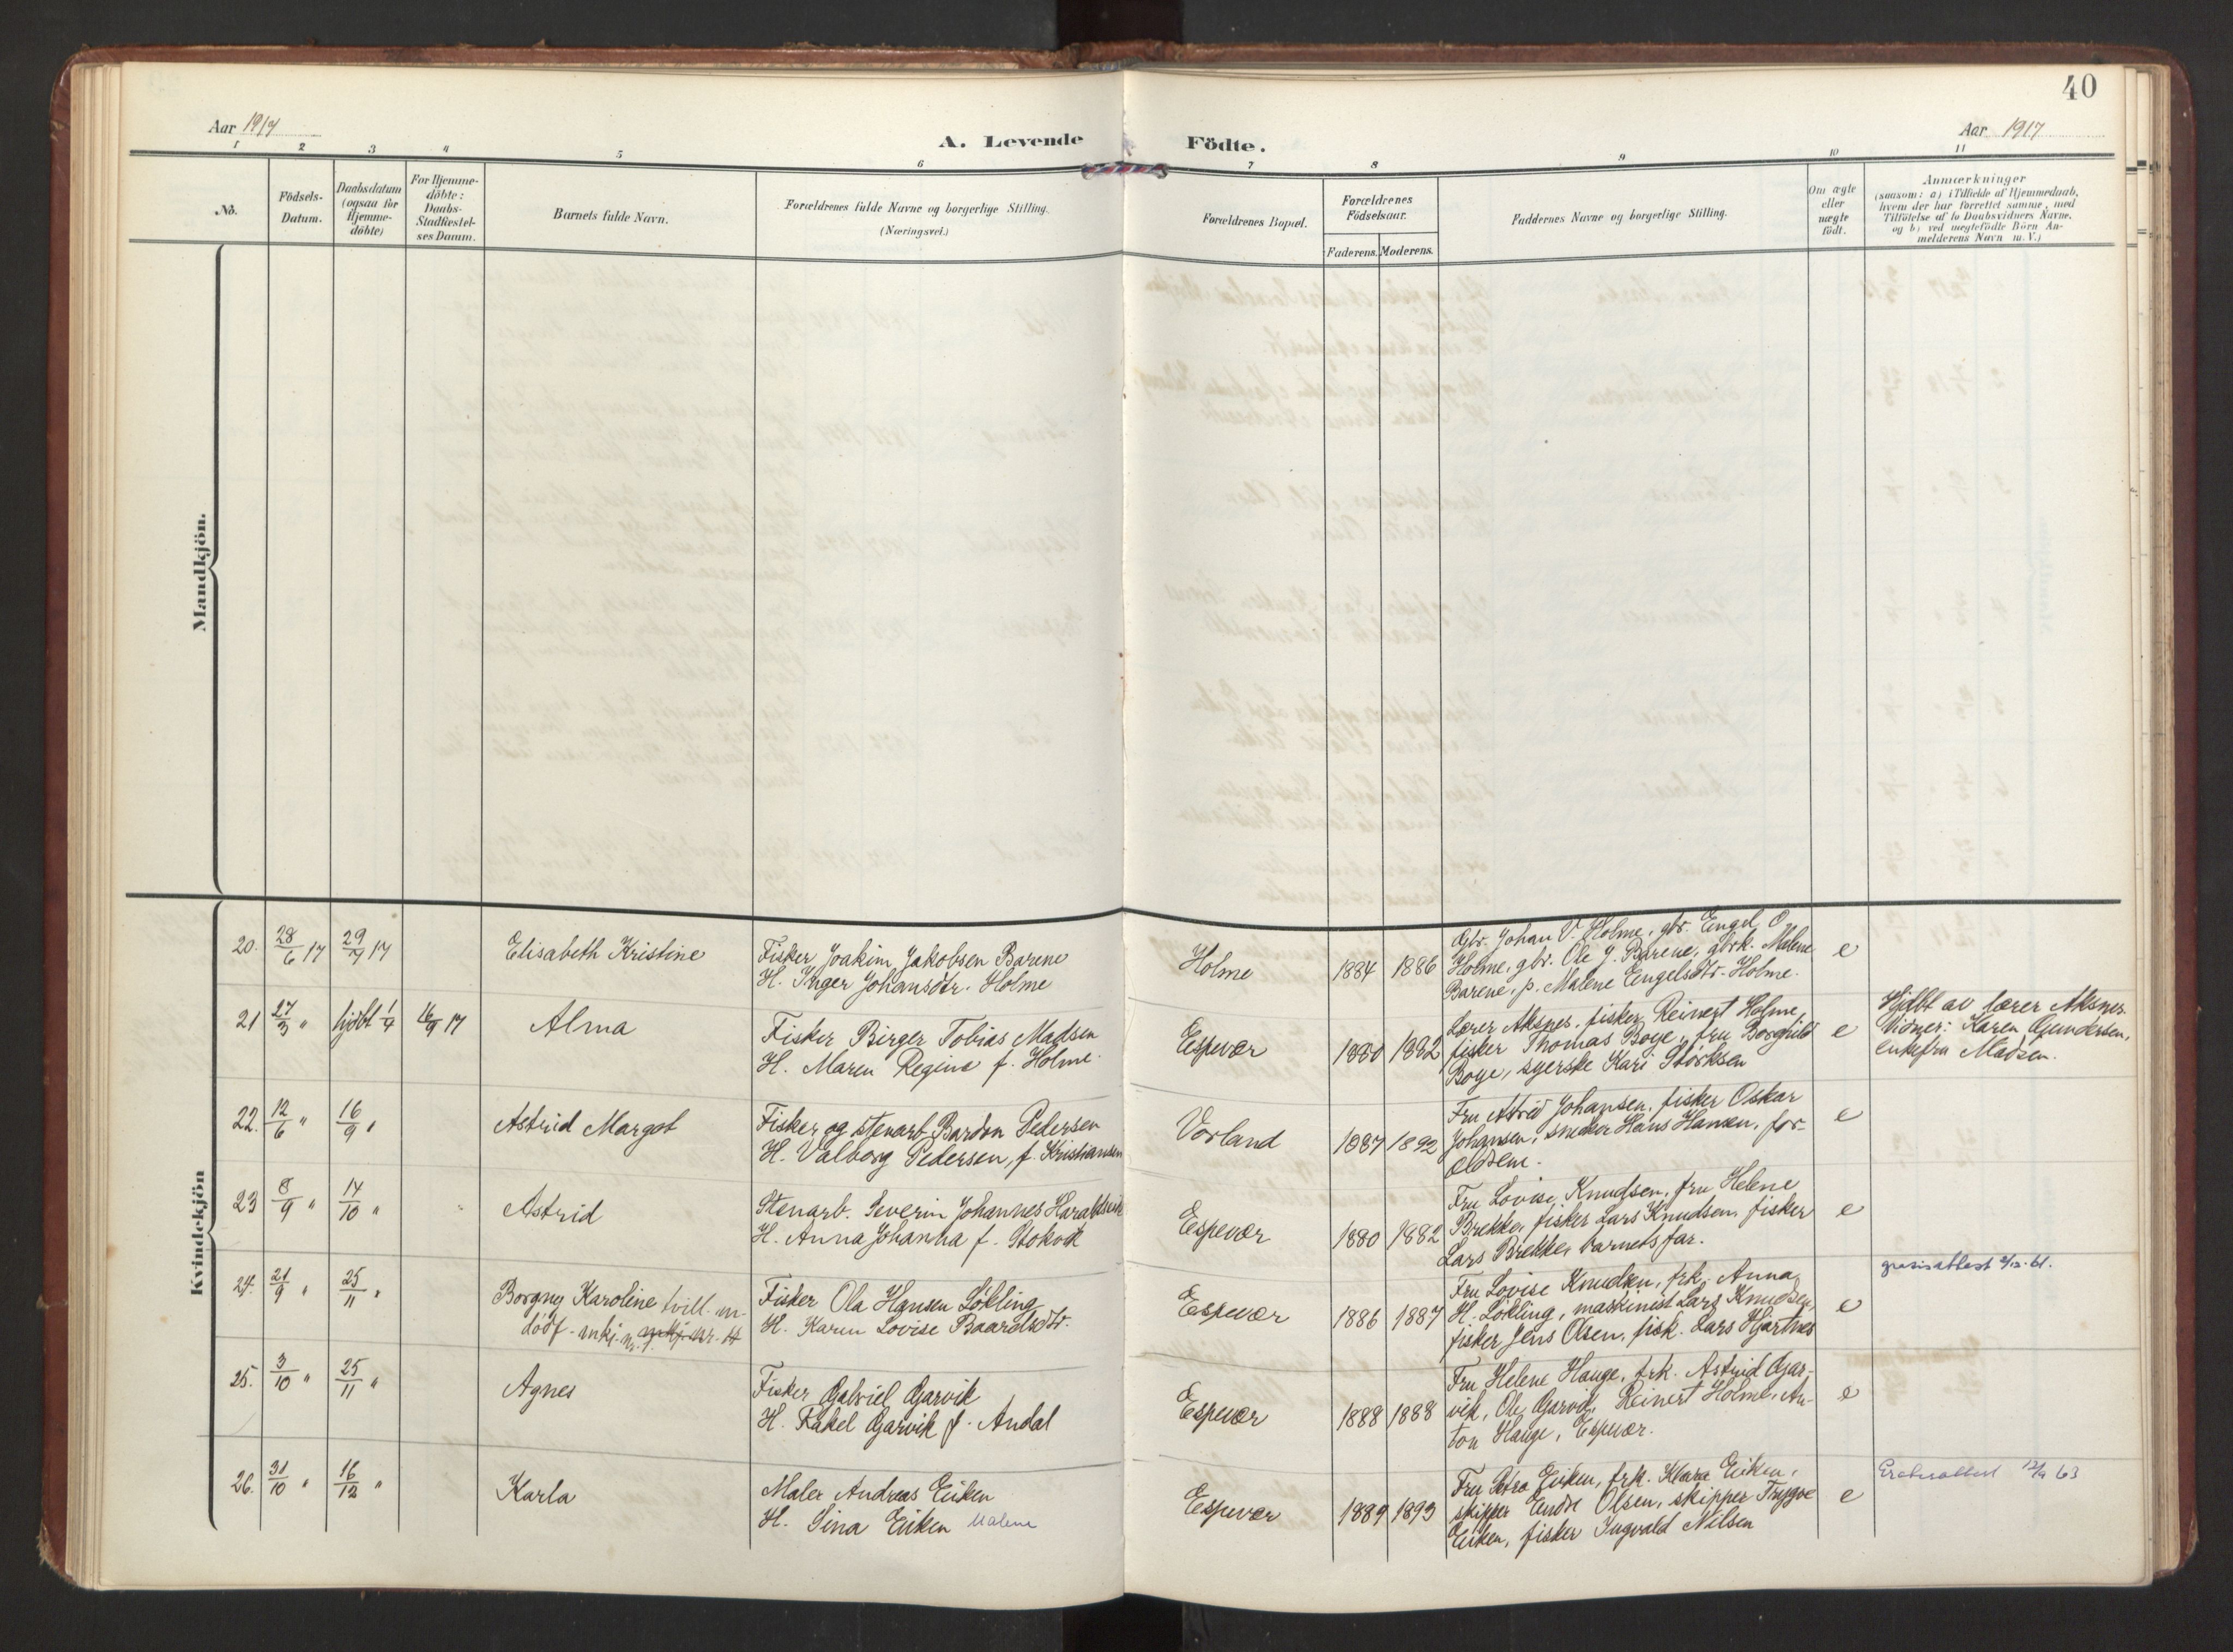 40
Aar 1917
A. Levende Födte.
Aar 1917
1 2 3 4 5 6 7 8 9 10 11
No.
Födsels-
Datum.
Daabsdatum
(ogsaa for
Hjemme-
döbte)
For Hjemme-
döbte:
Daabs-
Stadfæstel-
ses Datum.
Barnets fulde Navn.
Forældrenes fulde Navne og borgerlige Stilling.
(Næringsvei.)
Forældrenes Bopæl.
Forældrenes
Födselsaar.
Faderens. Moderens.
Faddernes Navne og borgerlige Stilling.
Om ægte
eller
uægte
födt.
Anmærkninger
(saasom: a) i Tilfælde af Hjemmedaab,
hvem der har forrettet samme, med
Tilföielse af to Daabsvidners Navne,
og b) ved uægtefödte Börn An-
melderens Navn m.V.)
Mandkjön.
Kvindekjön
20. 28/6 17 29/7 17
Elisabeth Kristine
Fisker Joakim Jakobsen Barene
H. Inger Johansdtr. Holme
Holme
1884 1886
Gbr. Johan V. Holme, gbr. Engel O.
Holme, gbr. Ole J. Barene, gbrk. Malene
Barene, p. Malene Engelsdtr. Holme.
e
21 27/3 " hjdbt 1/4 16/9 17
Alma
Fisker Birger Tobias Madsen
H. Maren Regine f. Holme.
Espevær
1880 1882
Lærer Aksnes, fisker Reinert Holme,
fisker Thomas Boye, fru Borghild
Boye, syerske Kari Störksen
e
Hjdbt av lærer Aksnes.
Vidner: Karen Gundersen,
enkefru Madsen.
22. 12/6 " 16/9 "
Astrid Margot
Fisker og stenarb. Bardon Pedersen
H. Valborg Pedersen, f. Kristiansen
Vorland
1887 1892
Fru Astrid Johansen, fisker Oskar
Johansen, snedker Hans Hansen, for-
ældrene.
e
23 8/9 " 14/10 "
Astrid
Stenarb. Severin Johannes Haraldseid
H. Anna Johanna f. Stokvik
Espevær
1880 1882
Fru Lovise Knudsen, fru Helene
Brekke, fisker Lars Knudsen, fisker
Lars Brekke, barnets far.
e
24. 21/9 " 25/11 "
Borgny Karoline tvill. m.
dödf. mkj. nr.
Fisker Ola Hansen Lökling
H. Karen Lovise Baardsdtr.
Espevær
1886 1887
Fru Lovise Knudsen, frk. Anna
H. Lökling, maskinist Lars Knudsen,
fisker Jens Olsen, fisk. Lars Hjartnes
e
gratisattest 2/12-61.
25. 3/10 " 25/11 "
Agnes
Fisker Gabriel Garvik
H. Rakel Garvik f. Andal
Espevær
1888 1888
Fru Helene Hauge, frk. Astrid Gar-
vik, Ole Garvik, Reinert Holme, An-
ton Hauge, Espevær.
e
26. 31/10 " 16/12 "
Karla
Maler Andreas Eiken
H. Sina Eiken Malene
Espevær
1889 1893
Fru Petra Eiken, frk. Klara Eiken,
skipper Endre Olsen, skipper Trygve
Eiken, fisker Ingvald Nilsen
e
12/9 63